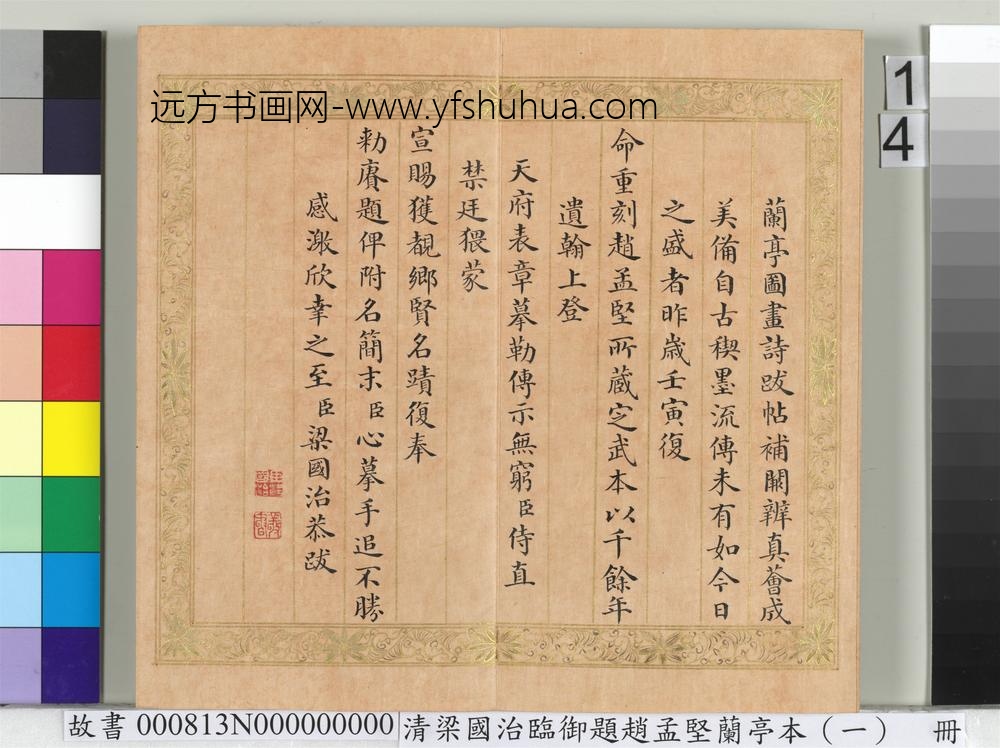 远方书画网-www.yfshuhua.com
1
4
蘭亭圖畫詩跋帖補闕辨真薈成
美備自古稧墨流傳未有如今日
之盛者昨歲壬寅復
命重刻趙孟堅所蔵定武本以千餘年
遺翰上登
天府表章摹勒傳示無窮臣侍直
禁廷猥蒙
宣賜獲覩鄉賢名蹟復奉
勅賡題俾附名簡末臣心摹手追不勝
感激欣幸之至臣梁國治恭跋
故書 000813N000000000 清梁國治臨御題趙孟堅蘭亭本（一） 冊